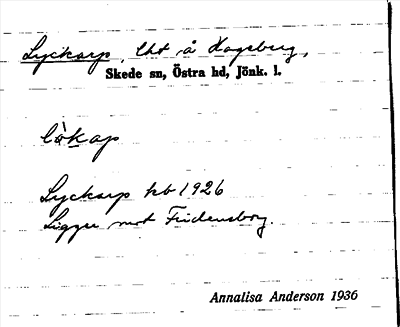 Lyckarp, lht å Hageberg,
Skede sn, Östra hd, Jönk. l.
lökap
Lyckarp kb 1926
Ligger mot Fridensborg.
Annalisa Anderson 1936